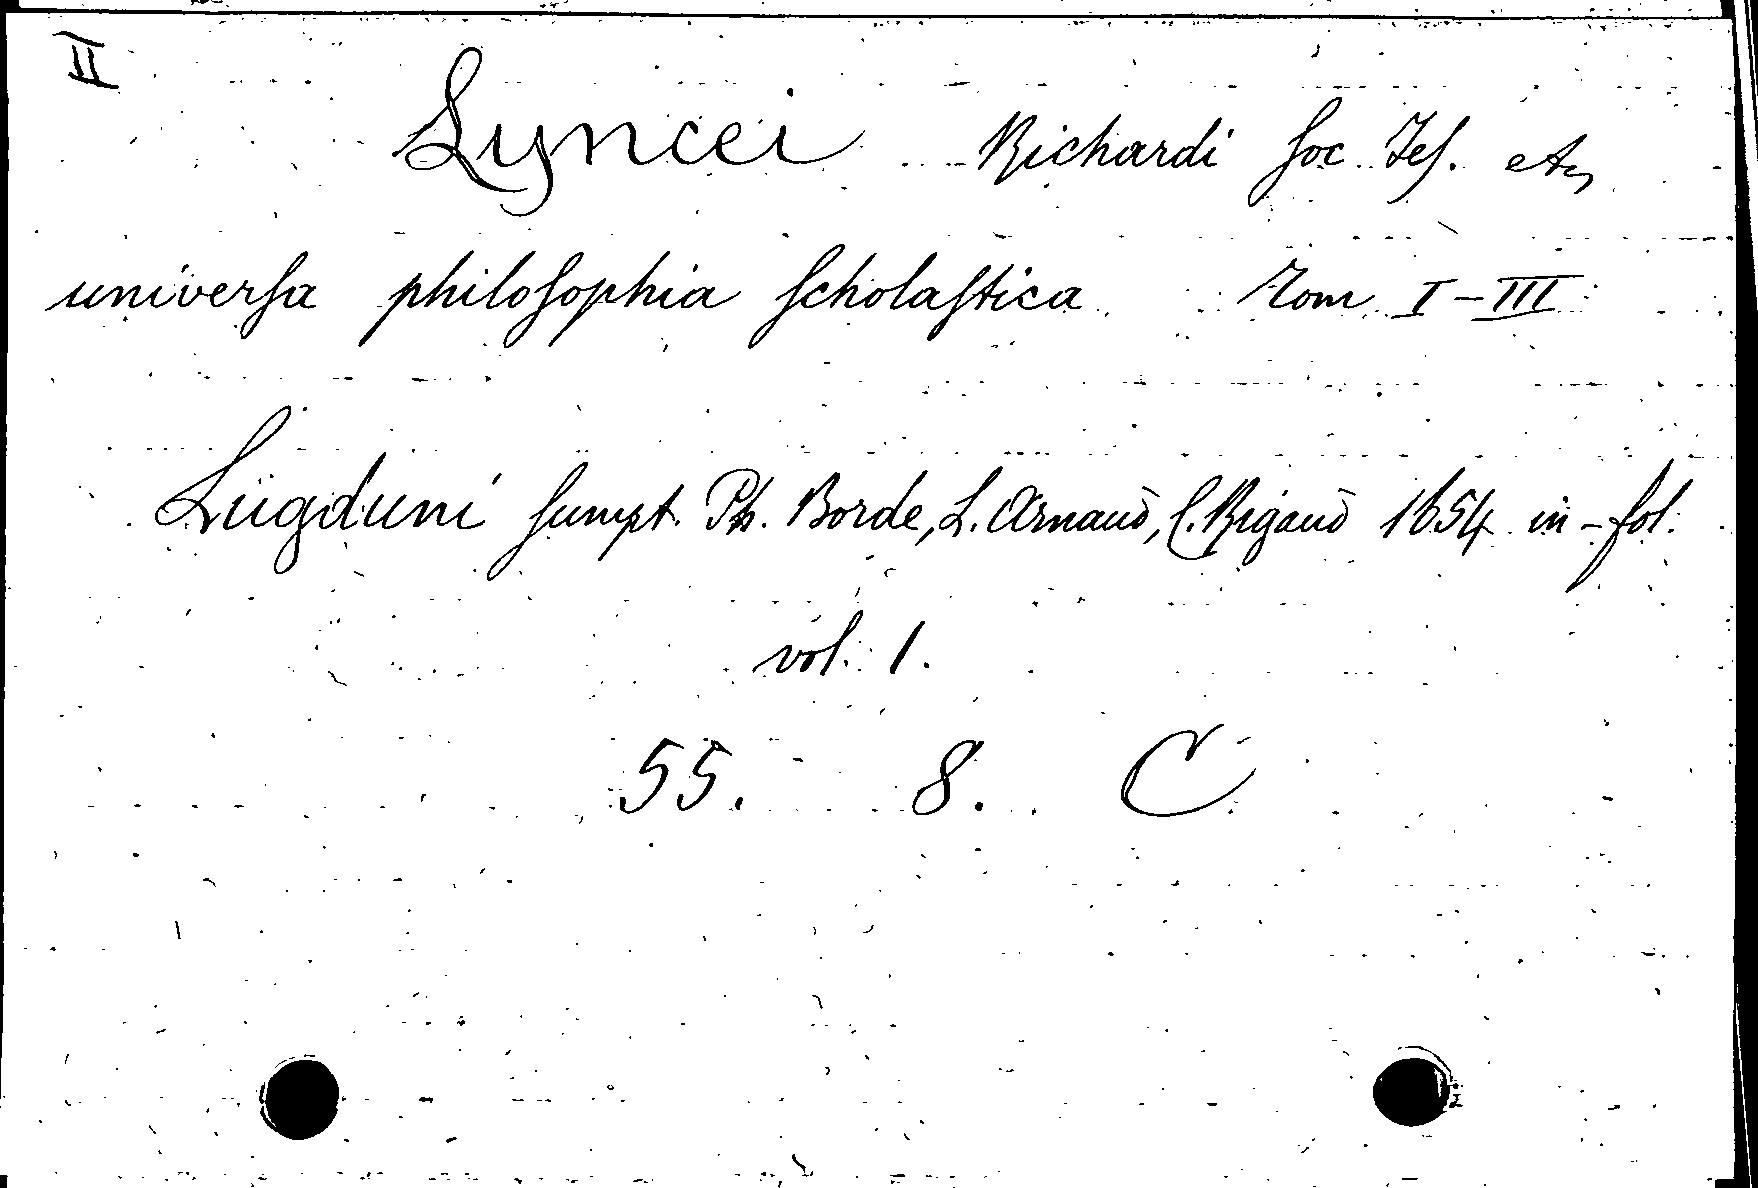 II
Lyncei Richardi Soc. Jes. etc
universa philosophia scholastica Tom I-III
Lugduni sumpt. Ph. Borde, L. Arnaud, C. Rigaud 1654 in-fol.
vol. 1.
55. 8. C